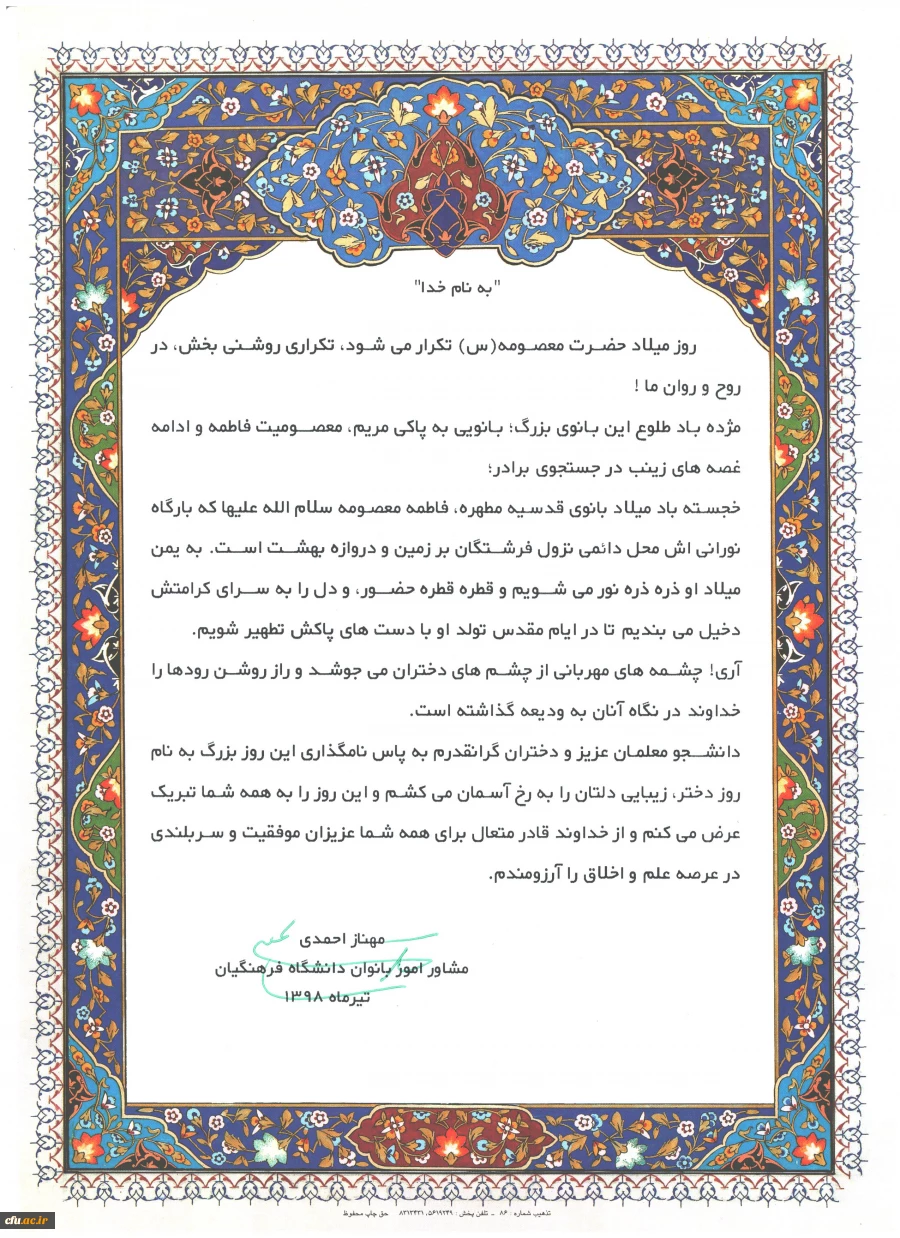 "به نام خدا"
روز میلاد حضرت معصومه(س) تکرار می شود، تکراری روشنی بخش، در
روح و روان ما !
مژده باد طلوع این بانوی بزرگ؛ بانویی به پاکی مریم، معصومیت فاطمه و ادامه
غصه های زینب در جستجوی برادر؛
خجسته باد میلاد بانوی قدسیه مطهره، فاطمه معصومه سلام الله علیها که بارگاه
نورانی اش محل دائمی نزول فرشتگان بر زمین و دروازه بهشت است. به یمن
میلاد او ذره ذره نور می شویم و قطره قطره حضور، و دل را به سرای کرامتش
دخیل می بندیم تا در ایام مقدس تولد او با دست های پاکش تطهیر شویم.
آری! چشمه های مهربانی از چشم های دختران می جوشد و راز روشن رودها را
خداوند در نگاه آنان به ودیعه گذاشته است.
دانشجو معلمان عزیز و دختران گرانقدرم به پاس نامگذاری این روز بزرگ به نام
روز دختر، زیبایی دلتان را به رخ آسمان می کشم و این روز را به همه شما تبریک
عرض می کنم و از خداوند قادر متعال برای همه شما عزیزان موفقیت و سربلندی
در عرصه علم و اخلاق را آرزومندم.
مهناز احمدی
مشاور امور بانوان دانشگاه فرهنگیان
تیرماه ۱۳۹۸
تذهیب شماره : ۸۶ - تلفن پخش : ۵۶۱۹۲۴۹، ۸۳۱۳۴۳۱ حق چاپ محفوظ
cfu.ac.ir